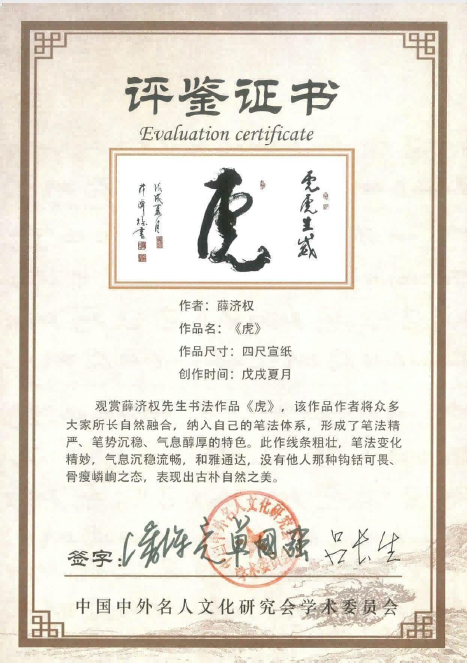 评鉴证书
Evaluation certificate
虎虎生威
虎
戊戌夏月
作者：薛济权
作品名：《虎》
作品尺寸：四尺宣纸
创作时间：戊戌夏月
观赏薛济权先生书法作品《虎》，该作品作者将众多
大家所长自然融合，纳入自己的笔法体系，形成了笔法精
严、笔势沉稳、气息醇厚的特色。此作线条粗壮，笔法变化
精妙，气息沉稳流畅，和雅通达，没有他人那种钩铦可畏、
骨瘦嶙峋之态，表现出古朴自然之美。
签字：
单国强 吕长生
中国中外名人文化研究会学术委员会